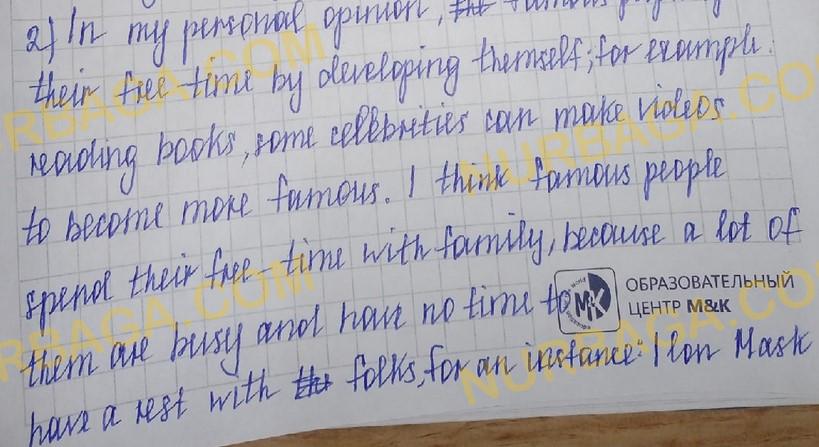 2) In my personal opinion, famous
their free-time by developing themself; for example:
reading books, some celebrities can make videos
to become more famous. I think famous people
spend their free-time with family, because a lot of
them are busy and have no time to
have a rest with folks, for an instance: Ilon Mask
ОБРАЗОВАТЕЛЬНЫЙ
ЦЕНТР M&K
NURBAGA.COM